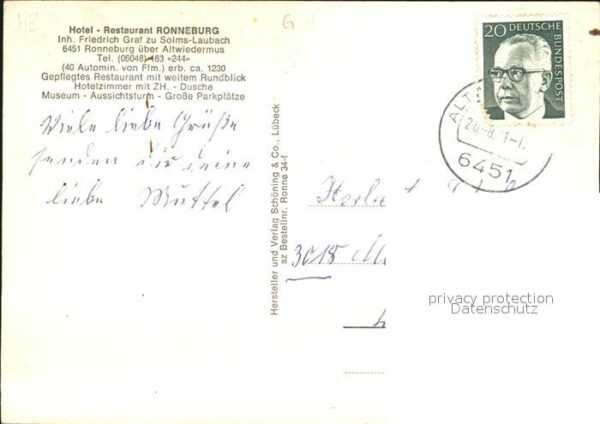 Hotel - Restaurant RONNEBURG
Inh. Friedrich Graf zu Solms-Laubach
6451 Ronneburg über Altwiedermus
Tel. (06048) 163 »244«
(40 Automin. von Ffm.) erb. ca. 1230
Gepflegtes Restaurant mit weitem Rundblick
Hotelzimmer mit ZH. - Dusche
Museum - Aussichtsturm - Große Parkplätze
Viele liebe Grüße
senden dir deine
liebe Muttel
Hersteller und Verlag Schöning & Co., Lübeck
sz Bestellnr. Ronne 34-f
20 DEUTSCHE BUNDESPOST
ALT
6451
3018
privacy protection
Datenschutz